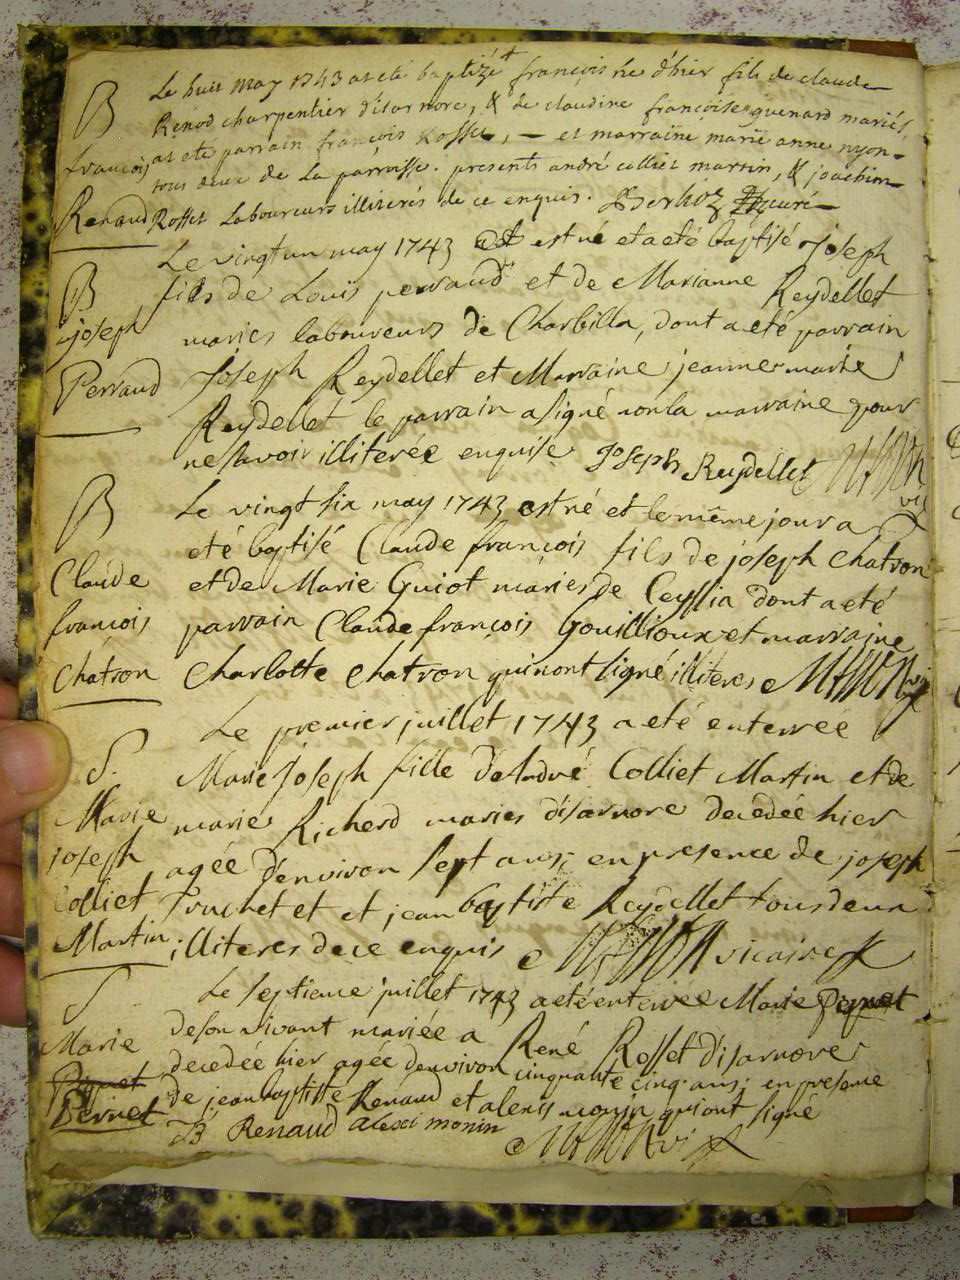 B
françois
Renaud
Le huit may 1743 a eté baptizé françois né d'hier fils de claude
Renod charpentier d'isarnore, & de claudine françoise guenard mariés,
a eté parrain françois Rosset, — et marraine marie anne nyon
tous deux de la parroisse. presents andré colliet martin, & joachim
Rosset Laboureurs illiterés de ce enquis. curé
B
joseph
Perraud
Le vingt un may 1743 est né et a eté baptisé Joseph
fils de Louis perraud et de Marianne Reydellet
maries laboureurs de Charbilla, dont a eté parrain
Joseph Reydellet et Marraine jeanne marie
Reydellet le parrain a signé non la marraine pour
ne savoir illiterée enquise Joseph Reydellet
B
Claude
françois
Chatron
Le vingt six may 1743 est né et le même jour a
eté baptisé Claude françois fils de joseph chatron
et de Marie Guiot mariés de Ceyssia dont a eté
parrain Claude françois Gouillioux et marraine
Charlotte Chatron qui n'ont signé illiteres
S.
Marie
joseph
Colliet
Martin
Le premier juillet 1743 a eté enterree
Marie Joseph fille d'André Colliet Martin et de
marie Richerd maries d'isarnore decedée hier
agée d'environ sept ans; en presence de joseph
Truchet et et jean baptiste Reydellet tous deux
illiteres de ce enquis vicaire
S
Marie
Pernet
Le septieme juillet 1743 a eté enterree Marie pernet
de son vivant mariée a René Rosset d'isarnore
decedée hier agée d'environ cinquante cinq ans; en presence
de jean baptiste Renaud et alexis monin qui ont signé
JB Renaud alexi monin